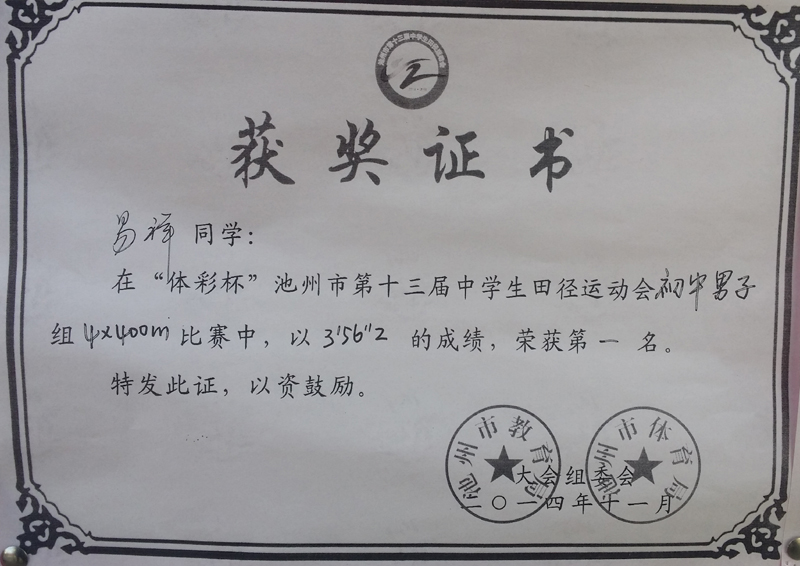 获奖证书
易祥 同学：
在“体彩杯”池州市第十三届中学生田径运动会初中男子
组4×400m比赛中，以 3'56"2 的成绩，荣获第一名。
特发此证，以资鼓励。
池州市教育局
池州市体育局
大会组委会
二〇一四年十一月